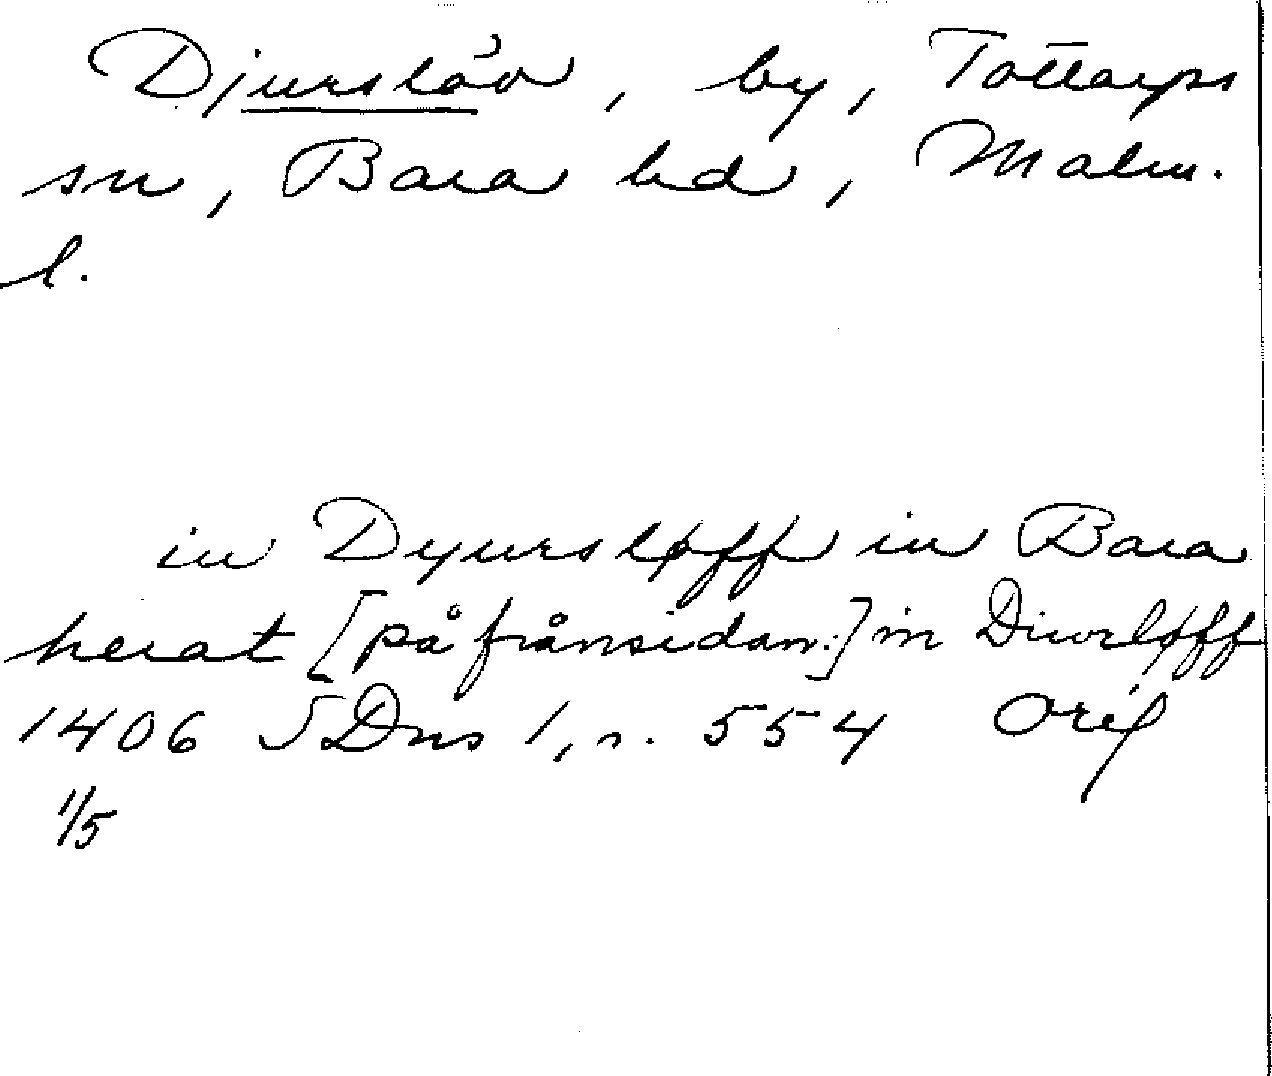 Djurslöv, by, Tottarps
sn, Bara hd, Malm.
l.
in Dyursløff in Bara
herat [på frånsidan:] in Diurløff
1406 SDns 1, s. 554 Orig
1/5